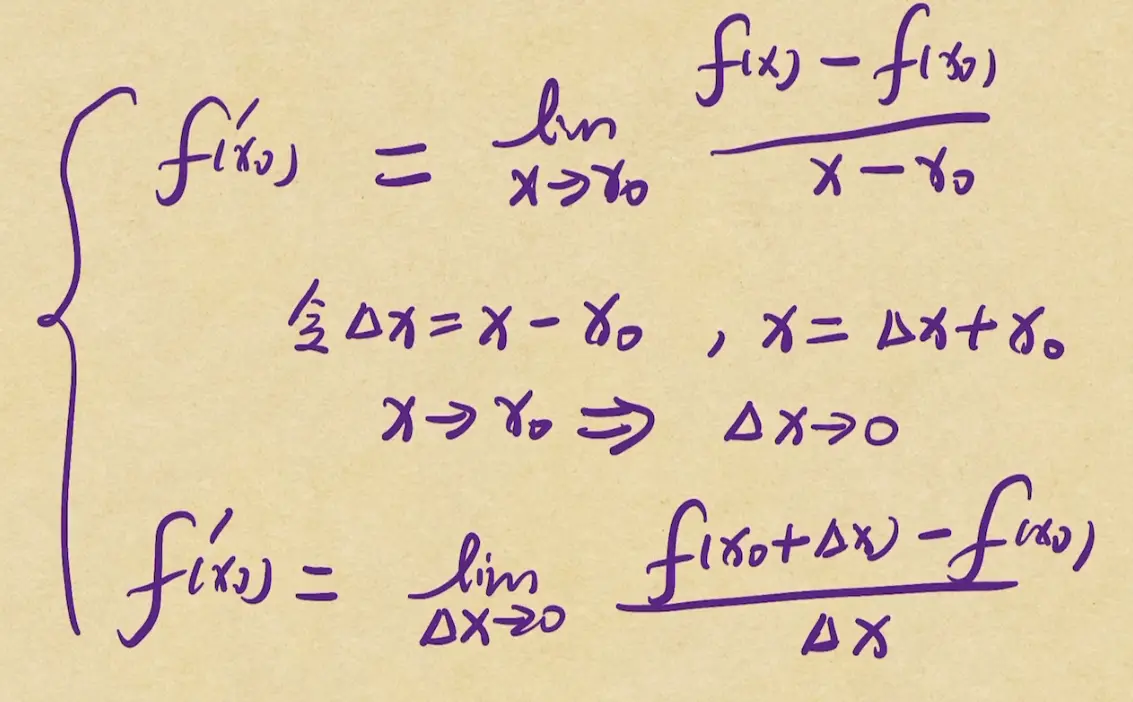 f'(x₀) = lim_{x→x₀} \frac{f(x) - f(x₀)}{x - x₀}
令 Δx = x - x₀ , x = Δx + x₀
x → x₀ ⇒ Δx → 0
f'(x₀) = lim_{Δx→0} \frac{f(x₀+Δx) - f(x₀)}{Δx}